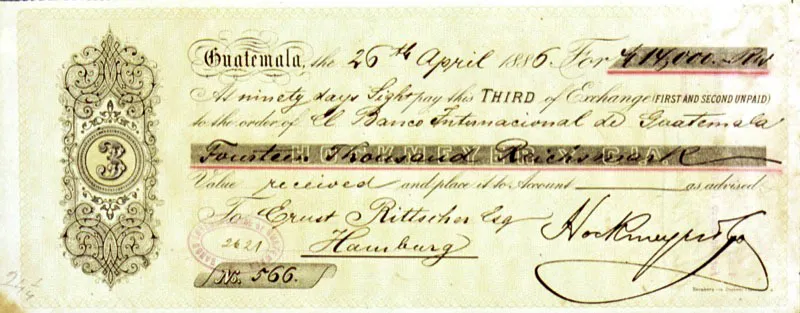 Guatemala, the 26th April 1886. For 14,000. Rm
At ninety days Sight pay this THIRD of Exchange (FIRST AND SECOND UNPAID)
to the order of El Banco Internacional de Guatemala
Fourteen Thousand Reichsmark
HOCKMEYER Y CIA
Value received and place it to Account as advised
To Ernst Rittscher Esq
Hamburg
Hockmeyer y Co
3
2621
No. 566.